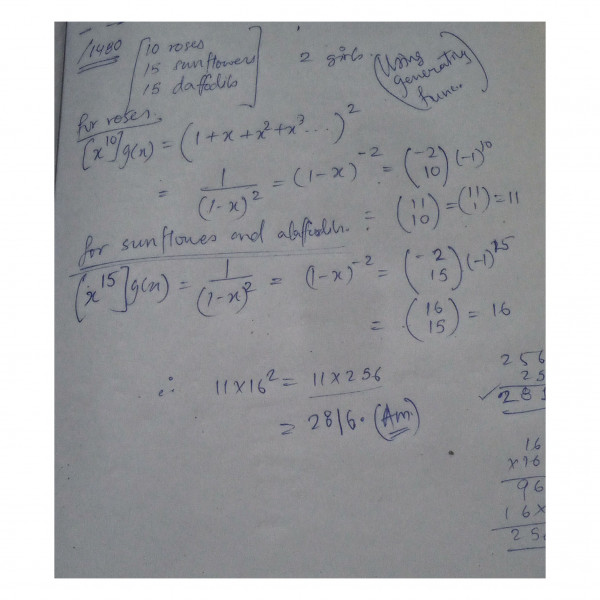 /1480
10 roses
15 sunflowers
15 daffodils
2 girls
(Using generating func.)
for roses,
[x^10] g(x) = (1 + x + x^2 + x^3 ...)^2
= 1/(1-x)^2 = (1-x)^-2 = (-2 10) (-1)^10
= (11 10) = (11 1) = 11
for sunflowes and daffodils.
[x^15] g(x) = 1/(1-x)^2 = (1-x)^-2 = (-2 15) (-1)^15
= (16 15) = 16
∴ 11×16^2 = 11×256
= 2816. (Am)
256
25
281
16
×16
96
16×
256